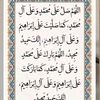 اللهم صل على محمد وعلى آل
محمد كما صليت على إبراهيم
وعلى آل إبراهيم إنك حميد
مجيد اللهم بارك على محمد
وعلى آل محمد كما باركت
على إبراهيم وعلى آل
إبراهيم إنك حميد مجيد